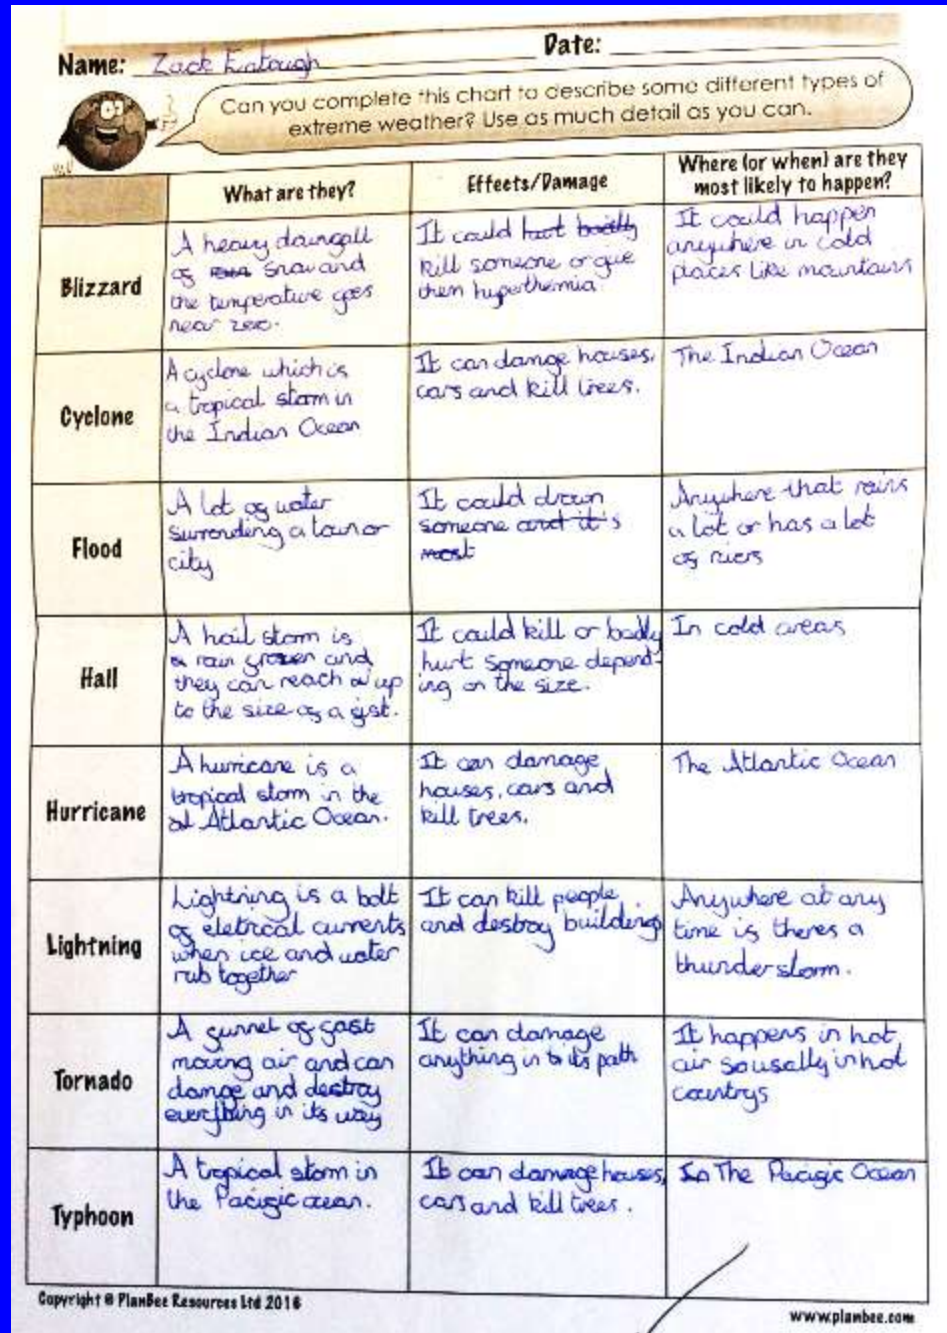 Name: Zack Eatough
Date:
Can you complete this chart to describe some different types of
extreme weather? Use as much detail as you can.
What are they?
Effects/Damage
Where (or when) are they
most likely to happen?
Blizzard
A heavy daungall
of snow and
the temperature goes
near zero.
It could hurt badly
kill someone or give
them hyperthemia
It could happen
anywhere in cold
places like mountains
Cyclone
A cyclone which is
a tropical storm in
the Indian Ocean
It can damge houses,
cars and kill trees.
The Indian Ocean
Flood
A lot of water
surronding a town or
city
It could drown
someone and it's
most
Anywhere that rains
a lot or has a lot
of rivers
Hail
A hail storm is
a rain frozen and
they can reach up
to the size of a fist.
It could kill or badly
hurt someone depend-
ing on the size.
In cold areas
Hurricane
A hurricane is a
tropical storm in the
at Atlantic Ocean.
It can damage
houses, cars and
kill trees.
The Atlantic Ocean
Lightning
Lightning is a bolt
of eletrical currents
when ice and water
rub together
It can kill people
and destroy buildings
Anywhere at any
time if theres a
thunder storm.
Tornado
A funnel of fast
moving air and can
damge and destroy
everything in its way
It can damage
anything in to its path
It happens in hot
air so usally in hot
countrys
Typhoon
A tropical storm in
the Pacific ocean.
It can damage houses,
cars and kill trees.
In The Pacific Ocean
Copyright © PlanBee Resources Ltd 2016
www.planbee.com